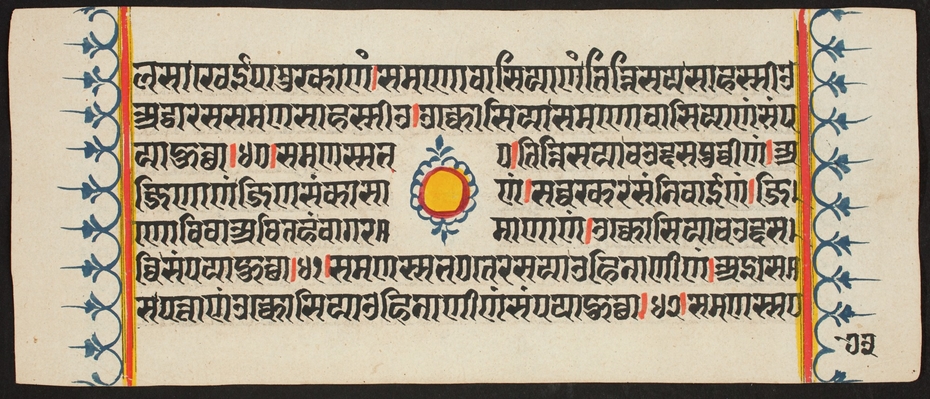 लसारेवईपामुरकाणं।समणोवासियाणं तिन्निसयसाहस्सीउ
अट्ठारससमणसाहस्सीउ।उक्कोसिया समणोवासियाणं संप
याहुत्था।४०।समणस्स भ ण।तिन्निसया चउद्दसपुव्वीणं।अ
जिणाणं जिणसंकासा णं।सव्वरकरसंनिवाईणं।जि
णोविवा अवितहं वागर माणाणं।उक्कोसिया चउद्दसपु
व्विसंपयाहुत्था।४१।समणस्स भ तेरससया उहिनाणीणं।अइसेस
पत्ताणं उक्कोसिया उहिनाणीणं संपयाहुत्था।४२।समणस्स भ